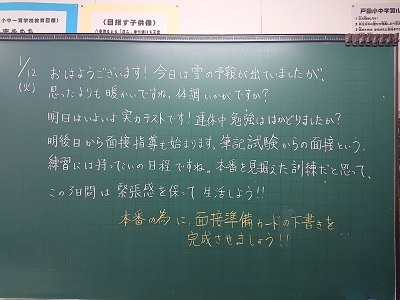 小中一貫学校教育目標
〈目指す子供像〉
戸
小中学習
1/12
(火)
おはようございます！今日は雪の予報が出ていましたが、
思ったよりも暖かいですね。体調いかがですか？
明日はいよいよ実力テストです！連休中勉強ははかどりましたか？
明後日から面接指導も始まります。筆記試験からの面接という、
練習には持ってこいの日程ですね。本番を見据えた訓練だと思って、
この3日間は緊張感を保って生活しよう!!
本番の為に、面接準備カードの下書きを
完成させましょう!!